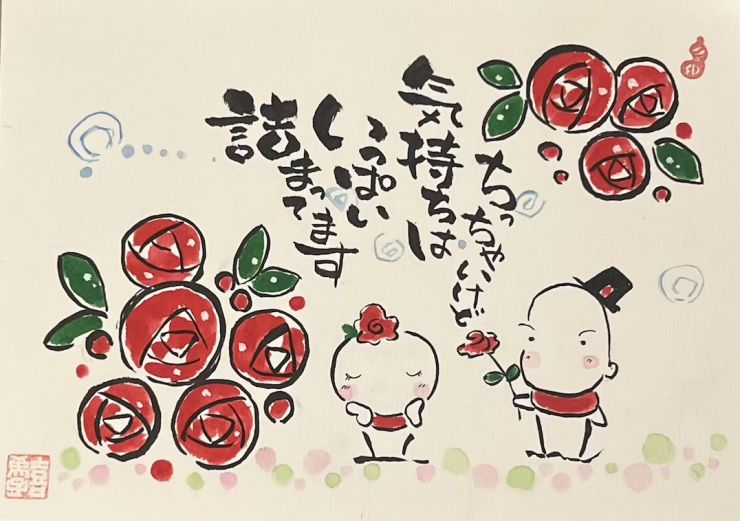 ちっちゃいけど
気持ちは
いっぱい
詰まってます